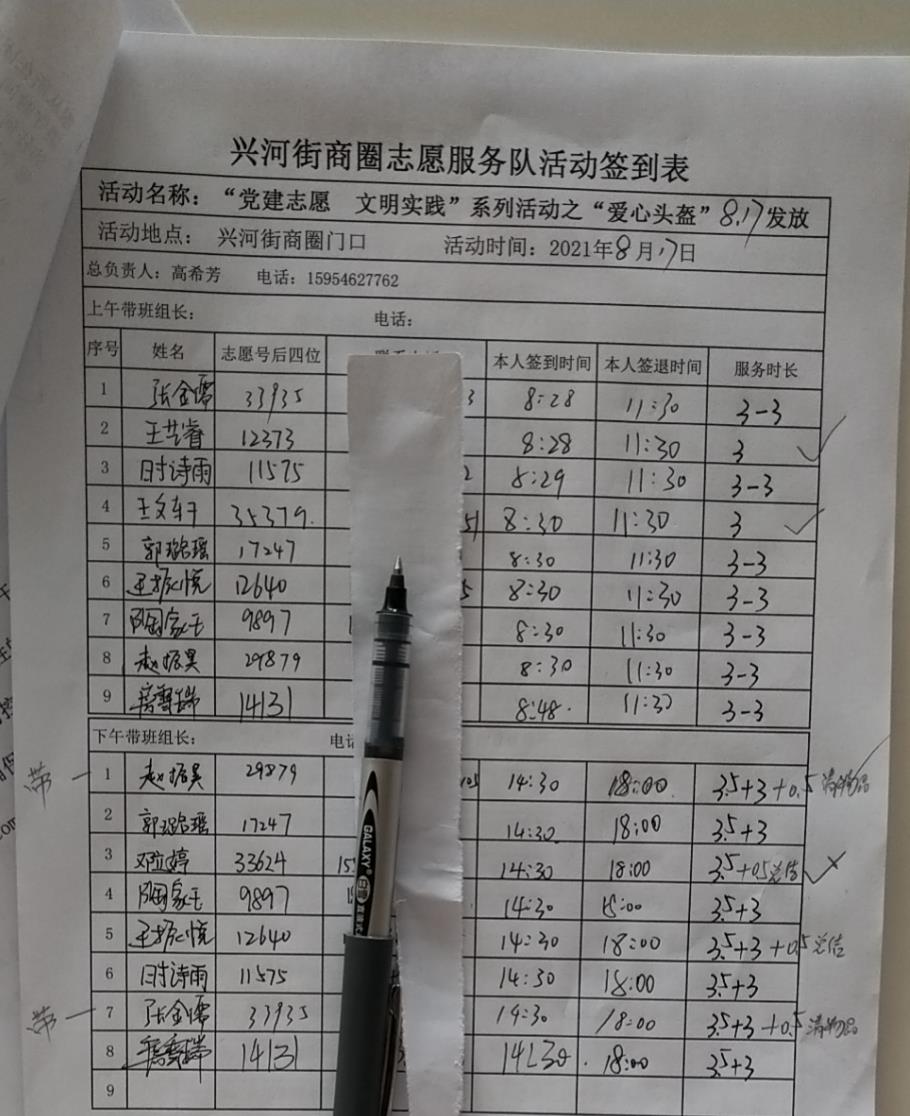 兴河街商圈志愿服务队活动签到表
活动名称：“党建志愿 文明实践”系列活动之“爱心头盔”8.17发放
活动地点： 兴河街商圈门口 活动时间：2021年8月17日
总负责人：高希芳 电话：15954627762
上午带班组长： 电话：
序号 姓名 志愿号后四位 本人签到时间 本人签退时间 服务时长
1 张金儒 33935 3 8:28 11:30 3-3
2 王芸睿 12373 8:28 11:30 3
3 时诗雨 11575 2 8:29 11:30 3-3
4 王文轩 35379. 51 8:30 11:30 3
5 郭璐瑶 17247 8:30 11:30 3-3
6 王振悦 12640 5 8:30 11:30 3-3
7 陶家玉 9897 8:30 11:30 3-3
8 赵振昊 29879 8:30 11:30 3-3
9 14131 8:48. 11:30 3-3
下午带班组长： 电话
带 1 赵振昊 29879 105 14:30 18:00 3.5+3+0.5 清物品
2 郭璐瑶 17247 14:30 18:00 3.5+3
3 邓立婷 33624 15 14:30 18:00 3.5+0.5总结
4 陶家玉 9897 14:30 18:00 3.5+3
5 王振悦 12640 14:30 18:00 3.5+3+0.5总结
6 时诗雨 11575 14:30 18:00 3.5+3
带 7 张金儒 33935 14:30 18:00 3.5+3+0.5 清物品
8 14131 14:30 18:00 3.5+3
9
GALAXY